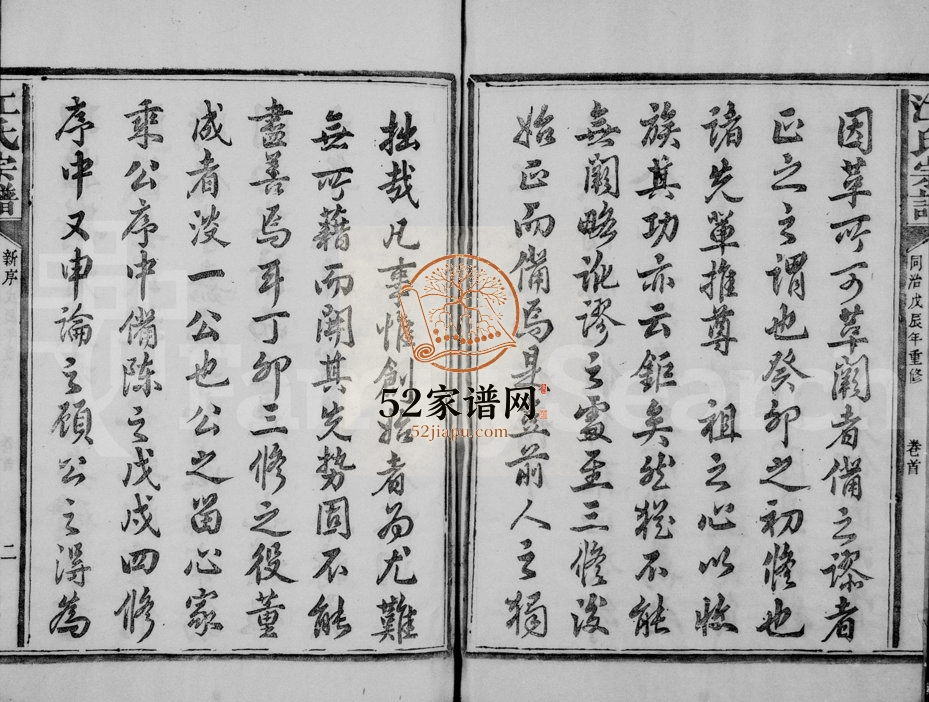 江氏宗譜
同治戊辰年重修
卷首
因革所可革闕者備之謬者
正之之謂也癸卯之初修也
諸先輩推尊 祖之心以收
族其功亦云鉅矣然猶不能
無闕略訛謬之處至三修後
始正而備焉是豈前人之獨
拙哉凡事惟創始者為尤難
無所藉而開其先勢固不能
盡善焉耳丁卯三修之役董
成者浚一公也公之留心家
乘公序中備陳之戊戌四修
序中又申論之顧公之得為
江氏宗譜
新序
二
52家谱网
52jiapu.com
FamilySearch